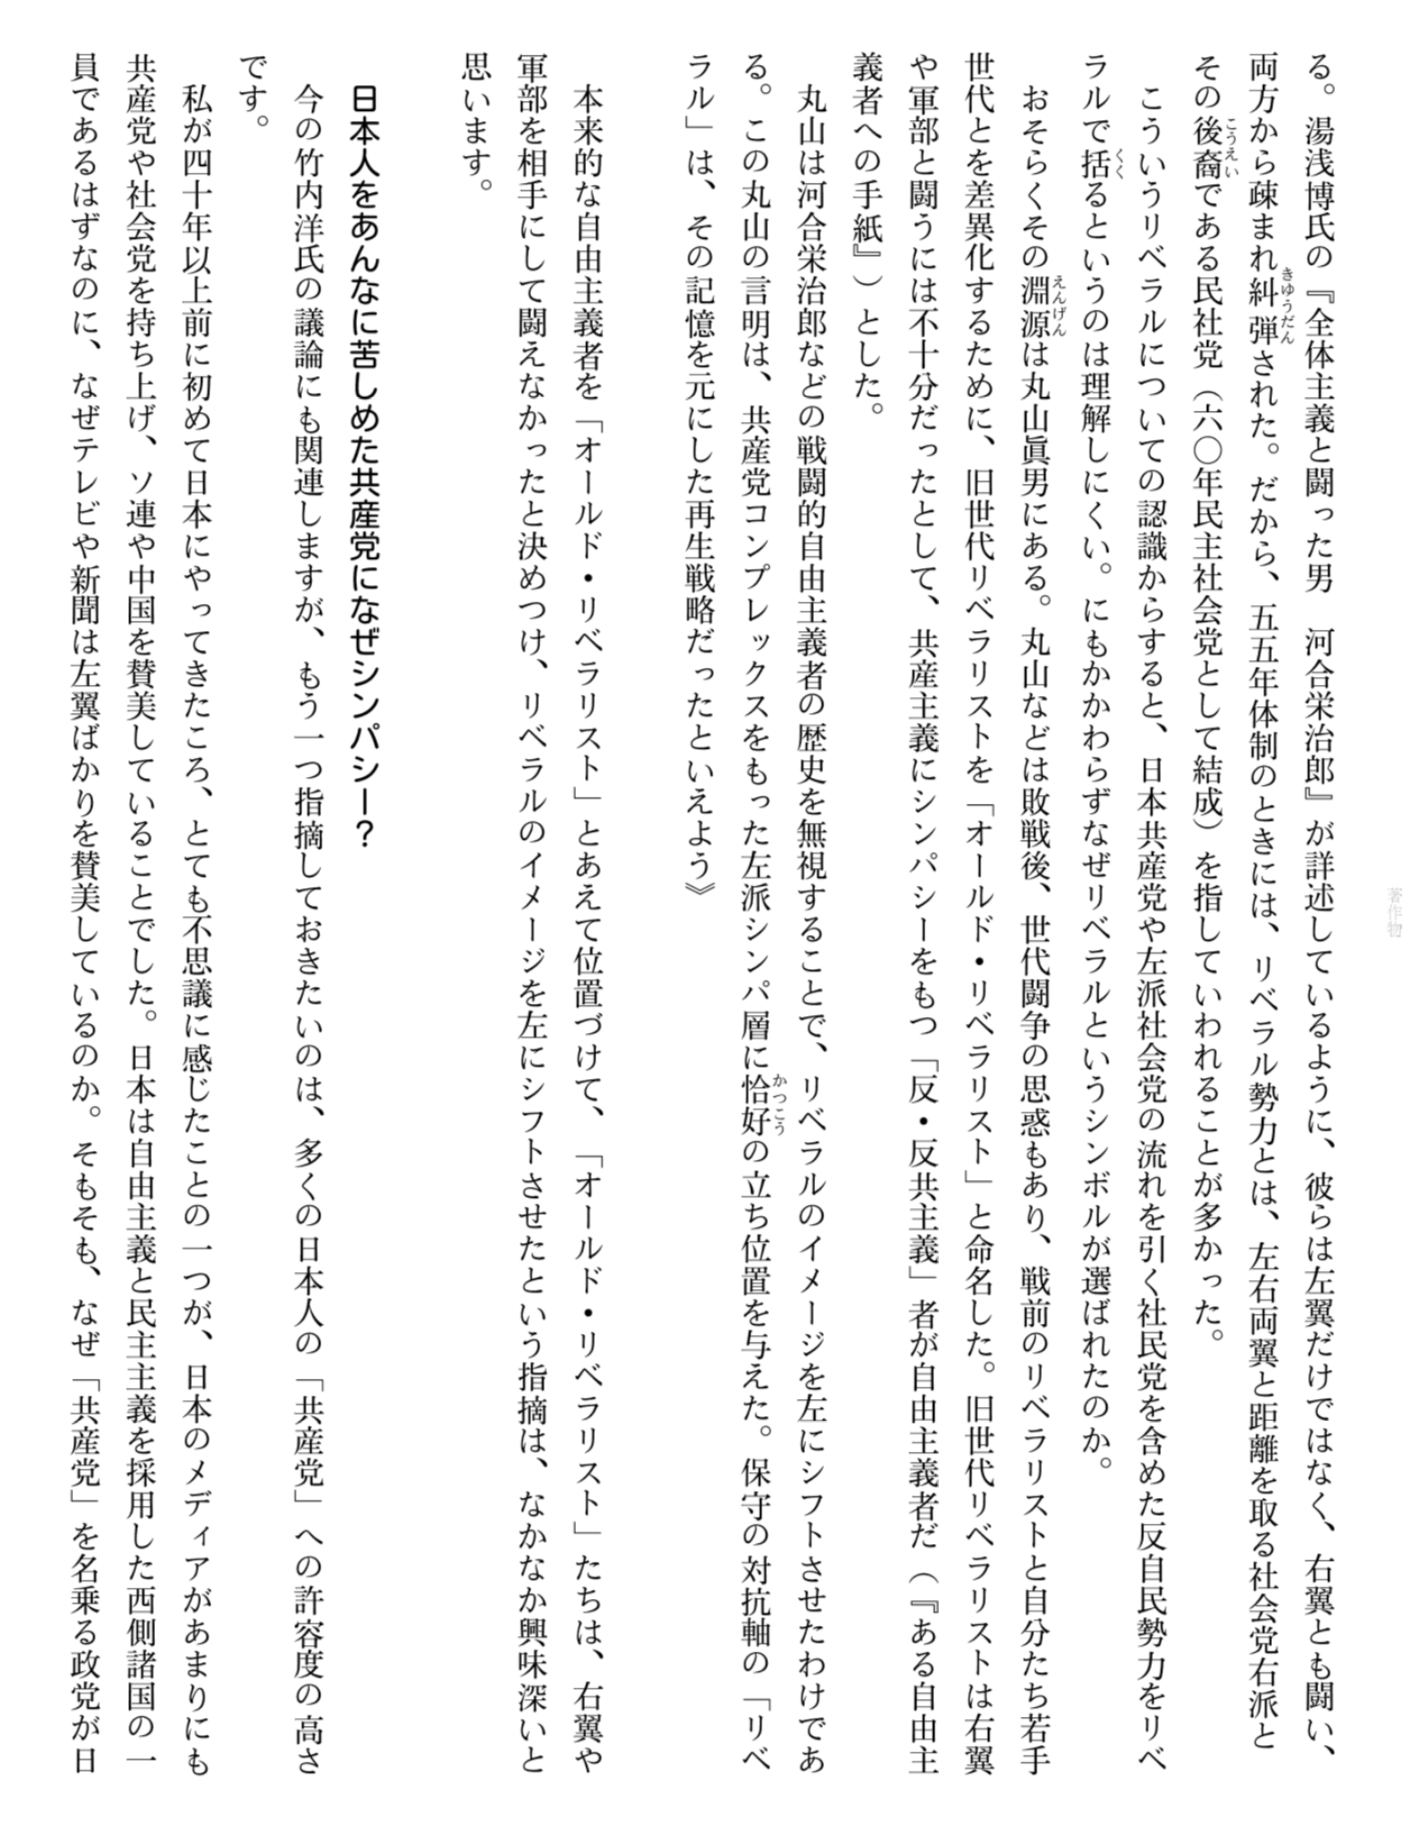 る。湯浅博氏の『全体主義と闘った男　河合栄治郎』が詳述しているように、彼らは左翼だけではなく、右翼とも闘い、
両方から疎まれ糾弾された。だから、五五年体制のときには、リベラル勢力とは、左右両翼と距離を取る社会党右派と
その後裔である民社党（六〇年民主社会党として結成）を指していわれることが多かった。
　こういうリベラルについての認識からすると、日本共産党や左派社会党の流れを引く社民党を含めた反自民勢力をリベ
ラルで括るというのは理解しにくい。にもかかわらずなぜリベラルというシンボルが選ばれたのか。
　おそらくその淵源は丸山眞男にある。丸山などは敗戦後、世代闘争の思惑もあり、戦前のリベラリストと自分たち若手
世代とを差異化するために、旧世代リベラリストを「オールド・リベラリスト」と命名した。旧世代リベラリストは右翼
や軍部と闘うには不十分だったとして、共産主義にシンパシーをもつ「反・反共主義」者が自由主義者だ（『ある自由主
義者への手紙』）とした。
　丸山は河合栄治郎などの戦闘的自由主義者の歴史を無視することで、リベラルのイメージを左にシフトさせたわけであ
る。この丸山の言明は、共産党コンプレックスをもった左派シンパ層に恰好の立ち位置を与えた。保守の対抗軸の「リベ
ラル」は、その記憶を元にした再生戦略だったといえよう》
　本来的な自由主義者を「オールド・リベラリスト」とあえて位置づけて、「オールド・リベラリスト」たちは、右翼や
軍部を相手にして闘えなかったと決めつけ、リベラルのイメージを左にシフトさせたという指摘は、なかなか興味深いと
思います。
日本人をあんなに苦しめた共産党になぜシンパシー？
　今の竹内洋氏の議論にも関連しますが、もう一つ指摘しておきたいのは、多くの日本人の「共産党」への許容度の高さ
です。
　私が四十年以上前に初めて日本にやってきたころ、とても不思議に感じたことの一つが、日本のメディアがあまりにも
共産党や社会党を持ち上げ、ソ連や中国を賛美していることでした。日本は自由主義と民主主義を採用した西側諸国の一
員であるはずなのに、なぜテレビや新聞は左翼ばかりを賛美しているのか。そもそも、なぜ「共産党」を名乗る政党が日
著作物